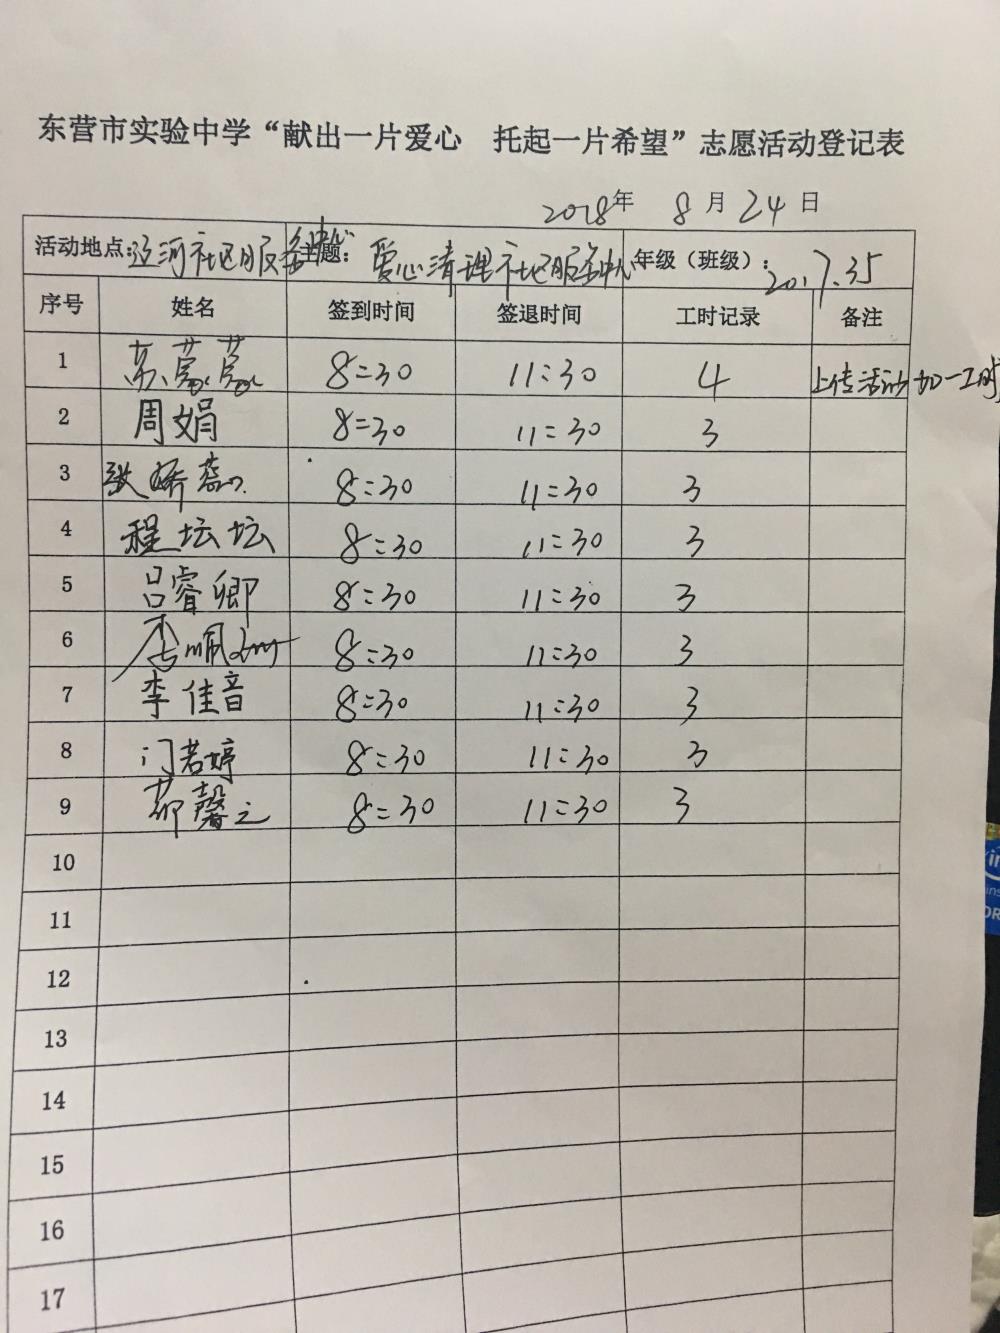 东营市实验中学“献出一片爱心 托起一片希望”志愿活动登记表
2018年 8月24日
活动地点:辽河社区服务中心 主题:爱心清理社区服务中心 年级(班级):2017.35
序号 姓名 签到时间 签退时间 工时记录 备注
1 苏蒙蒙 8:30 11:30 4 上传活动加一工时
2 周娟 8:30 11:30 3
3 张娇蕊 8:30 11:30 3
4 程坛坛 8:30 11:30 3
5 吕睿卿 8:30 11:30 3
6 8:30 11:30 3
7 李佳音 8:30 11:30 3
8 门若婷 8:30 11:30 3
9 馨之 8:30 11:30 3
10
11
12
13
14
15
16
17